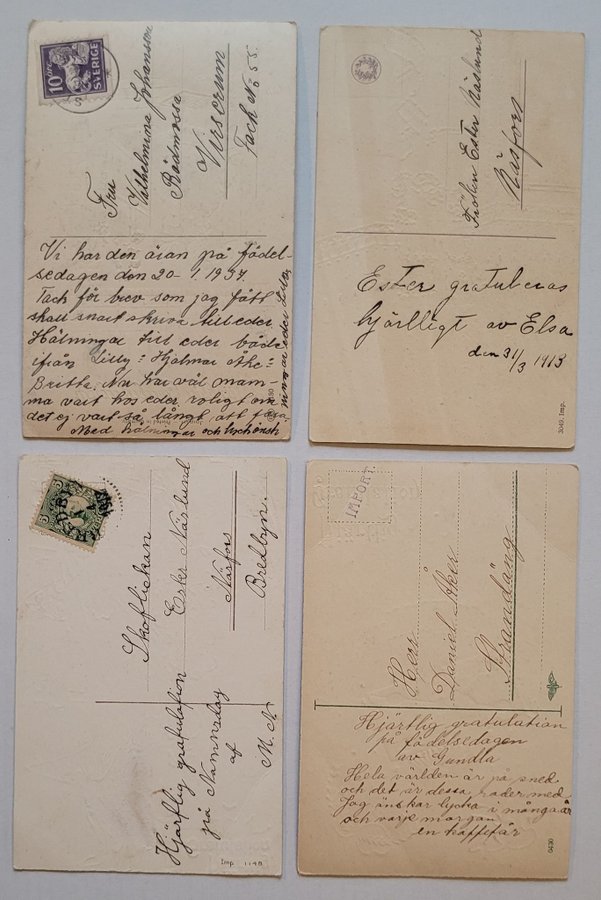 10 ÖRE
SVERIGE
Fru
Vilhelmina Johansson
Rödmossa
Virserum
Tack No 55.
Vi har den äran på födel-
sedagen den 20-1.1937
Tack för brev som jag fått
skall snart skriva till eder
Hälningar till eder både
ifrån Lilly = Hjalmar Åke =
Britta. Nu har väl mam-
ma vart hos eder roligt om
det ej vart så långt att fara
Med hälningar och lyckönsk
Fröken Ester Näslund
Näsfors
Ester gratuleras
hjärlligt av Elsa
den 31/3 1913
3049. Imp.
5
Skoflickan
Ester Näslund
Näsfors
Bredbyn.
Hjärtlig gratulation
på Namnsdag
af
M. N.
Imp. 1148
IMPORT.
Herr
Daniel Åker
Strandäng
Hjärtlig gratulation
på födelsedagen
av Gundla
Hela världen är på sned
och det är dessa rader med
Jag önskar lycka i många år
och varje morgan
en kaffetår
0490